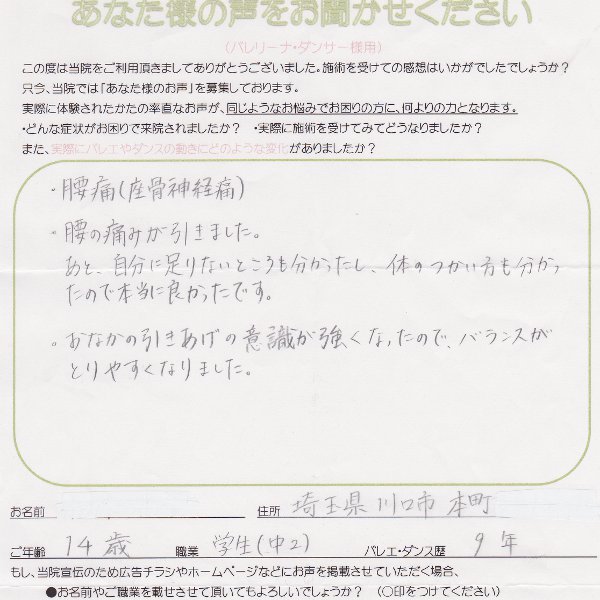 あなた様の声をお聞かせください
(バレリーナ・ダンサー様用)
この度は当院をご利用頂きましてありがとうございました。施術を受けての感想はいかがでしたでしょうか?
只今、当院では「あなた様のお声」を募集しております。
実際に体験されたかたの率直なお声が、同じようなお悩みでお困りの方に、何よりの力となります。
・どんな症状がお困りで来院されましたか? ・実際に施術を受けてみてどうなりましたか?
また、実際にバレエやダンスの動きにどのような変化がありましたか?
・腰痛(座骨神経痛)
・腰の痛みが引きました。
あと、自分に足りないところも分かったし、体のつかい方も分かっ
たので本当に良かったです。
・おなかの引きあげの意識が強くなったので、バランスが
とりやすくなりました。
お名前 住所 埼玉県川口市本町
ご年齢 14歳 職業 学生(中2) バレエ・ダンス歴 9年
もし、当院宣伝のため広告チラシやホームページなどにお声を掲載させていただく場合、
●お名前やご職業を載せさせて頂いてもよろしいでしょうか? (〇印をつけてください)